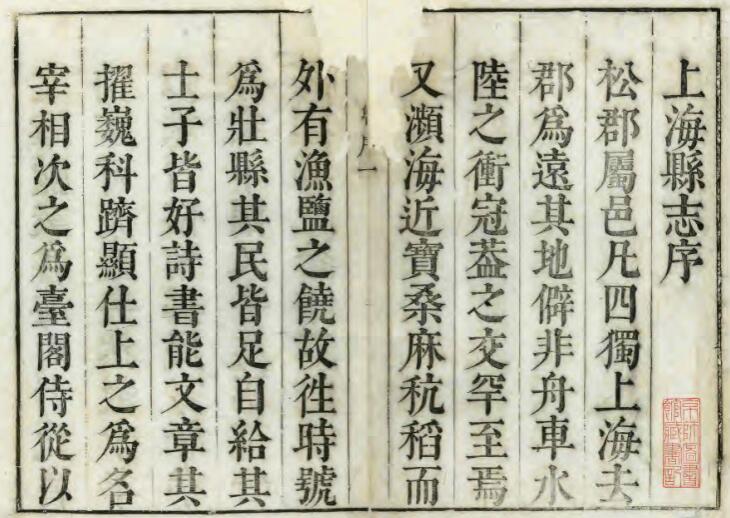 上海縣志序
松郡屬邑凡四獨上海去
郡為遠其地僻非舟車水
陸之衝冠葢之交罕至焉
又瀕海近寶桑麻秔稻而
外有漁鹽之饒故徃時號
為壯縣其民皆足自給其
士子皆好詩書能文章其
擢巍科躋顯仕上之為名
宰相次之為臺閣侍從以